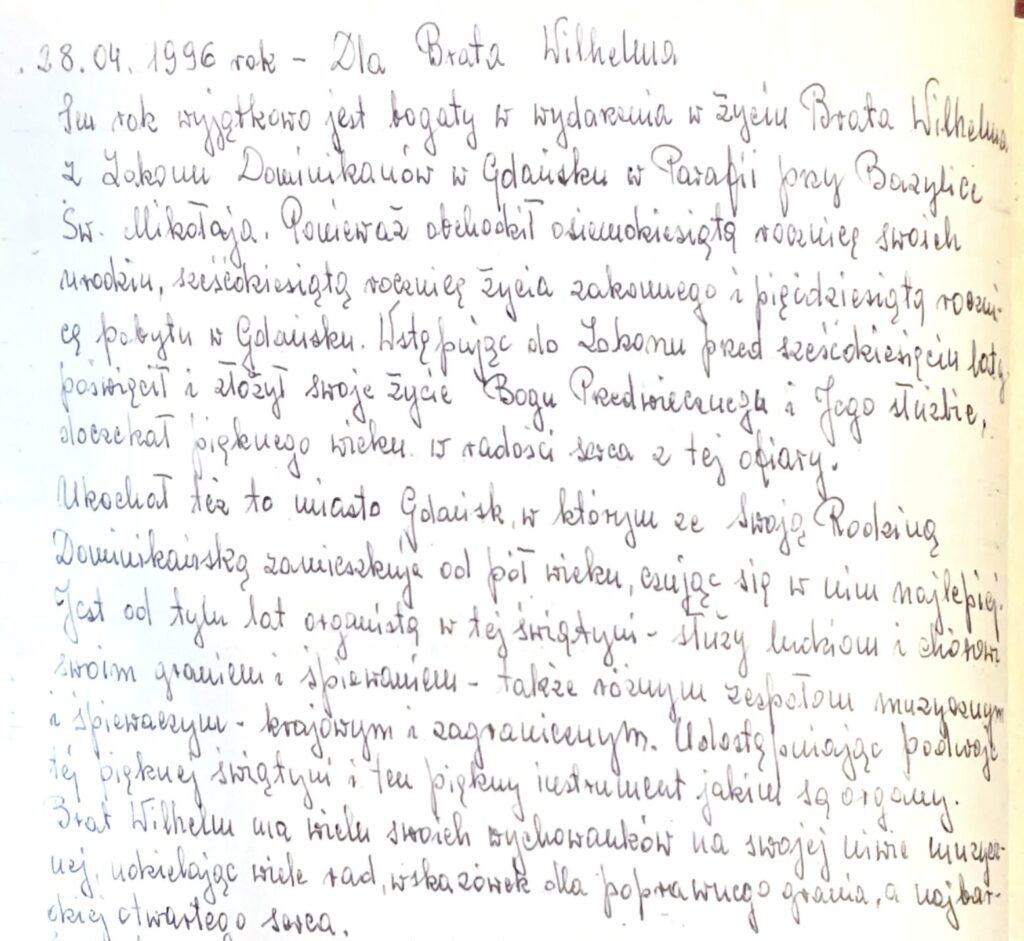 28.04.1996 rok - Dla Brata Wilhelma
Ten rok wyjątkowo jest bogaty w wydarzenia w życiu Brata Wilhelma
z Zakonu Dominikanów w Gdańsku w Parafii przy Bazylice
Św. Mikołaja. Ponieważ obchodził osiemdziesiątą rocznicę swoich
urodzin, sześćdziesiątą rocznicę życia zakonnego i pięćdziesiątą roczni-
cę pobytu w Gdańsku. Wstępując do Zakonu przed sześćdziesięciu laty
poświęcił i złożył swoje życie Bogu Przedwiecznemu i Jego służbie,
doczekał pięknego wieku w radości serca z tej ofiary.
Ukochał też to miasto Gdańsk, w którym ze swoją Rodziną
Dominikańską zamieszkuje od pół wieku, czując się w nim najlepiej.
Jest od tylu lat organistą w tej świątyni - służy ludziom i chórowi
swoim graniem i śpiewaniem - także różnym zespołom muzycznym
i śpiewaczym - krajowym i zagranicznym. Udostępniając podwoje
tej pięknej świątyni i ten piękny instrument jakim są organy.
Brat Wilhelm ma wielu swoich wychowanków na swojej niwie muzycz-
nej, udzielając wiele rad, wskazówek dla poprawnego grania, a najbar-
dziej otwartego serca.